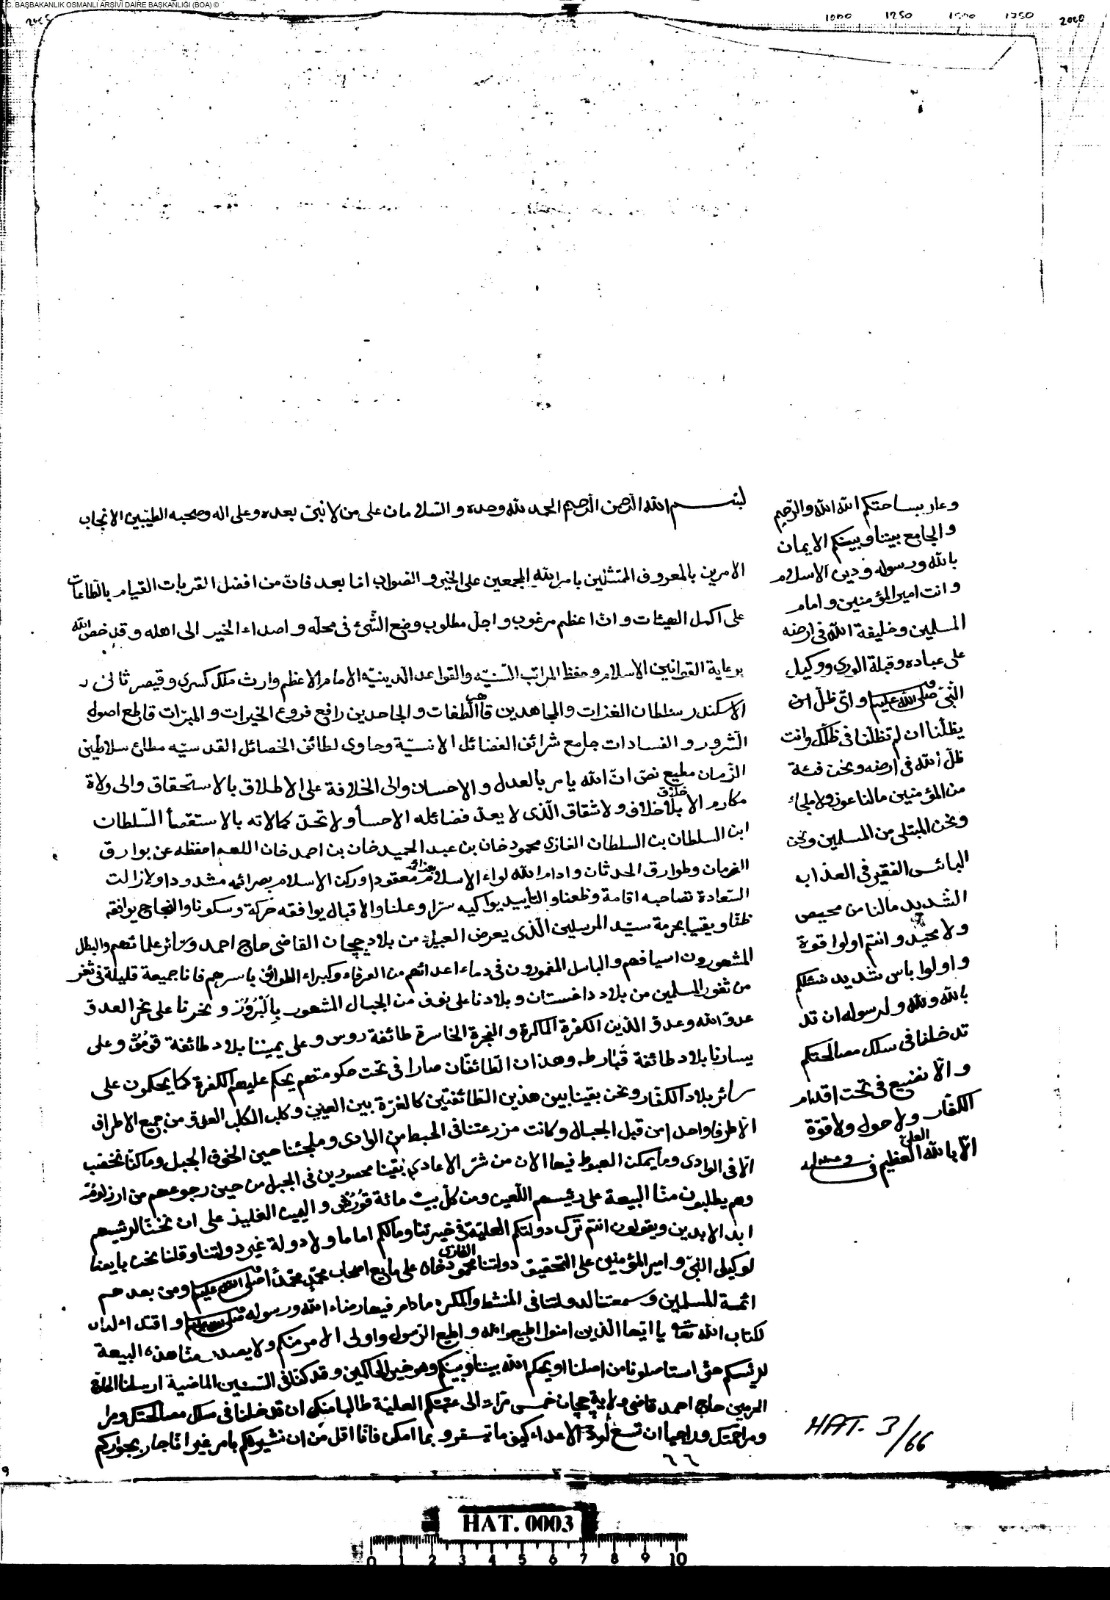 C. BAŞBAKANLIK OSMANLI ARŞİVİ DAİRE BAŞKANLIĞI (BOA) ©
1000 1250 1500 1750 2000
بسم الله الرحمن الرحيم الحمد لله وحده و السلامان على من لا نبى بعده و على اله وصحبه الطيبين الانجاب
الامرين بالمعروف الممتثلين بامر الله المجمعين على الخير و الصواب اما بعد فان من افضل القربات القيام بالطاعات
على اكمل الهيئات و ان اعظم مرغوب و اجل مطلوب وضع الشئ فى محله و اصداء الخير الى اهله و قد خص الله
برعاية القوانين الاسلام و حفظ المراتب السنية و القواعد الدينية الامام الاعظم وارث ملك كسرى و قيصر ثانى
الاسكندر سلطان الغزات و المجاهدين قاهر الطغات و الجاحدين رافع فروع الخيرات و المبرات قاطع اصول
الشرور و الفسادات جامع شرائف الفضائل الانسية و حاوى لطائف الخصائل القدسية مطاع سلاطين
الزمان مطيع نص ان الله يامر بالعدل و الاحسان والى الخلافة على الاطلاق بالاستحقاق والى ولاة
مكارم الاخلاق بلا خلاف ولا شقاق الذى لا يعد فضائله الاحسأ ولا تحد كمالاته بالاستقصأ السلطان
ابن السلطان بن السلطان الغازى محمود خان بن عبد الحميد خان بن احمد خان اللهم احفظه عن بوارق
الزمان و طوارق الحدثان و ادام الله لواء الاسلام معقودا و ركن الاسلام بصرائمه مشدودا ولا زالت
السعادة تصاحبه اقامة و ظعنا و التأييد يواكبه سرا و علنا و الاقبال يوافقه حركة و سكونا و النجاح يوافقه
ظنا و يقينا بحرمة سيد المرسلين الذى يعرض العبيد من بلاد چچان القاضى حاج احمد و سائر علمائهم و البطل
المشهورون اسيافهم و الباسل المغمورون فى دماء اعدائهم من العرفاء و كبراء الطوائف باسرهم فانا جميعة قليلة فى ثغر
من ثغور المسلمين من بلاد داغستان و بلادنا على نصف من الجبال المشهور بالبرز و نحرنا على نحر العدو
عدو الله و عدو الدين الكفرة الماكرة و الفجرة الخاسرة طائفة روس و على يميننا بلاد طائفة قومق و على
يسارنا بلاد طائفة قبارطه و هذان الطائفتان صارا فى تحت حكومتهم يحكم عليهم الكفرة كما يحكمون على
سائر بلاد الكفار و نحن بقينا بين هذين الطائفتين كالغرة بين العينين و كلب الكلب العدو من جميع الاطراف
الا طرفا واحدا من قبل الجبال و كانت مزرعتنا فى المحبط من الوادى و ملجئنا حين الخوف الجبل و ما كنا نخصب
الا فى الوادى و ما يمكن الهبوط فيها الان من شر الاعادى بقينا محصورين فى الجبل من حين رجوعهم من ارزلوم
و هم يطلبون منا البيعة على رئيسهم اللعين و من كل بيت مائة قروش و اليمين الغليظ على ان نختنا لرئيسهم
ابد الابدين و يقولون انتم ترك دولتكم العلية فى خبرتنا و مالكم اماما ولا دولة غير دولتنا و قلنا نحن بايعنا
لوكيل النبى و امير المؤمنين على التحقيق دولتنا محمود خان الغازى على ما بايع اصحاب محمد محمدا صلى الله عليه و من بعدهم
ائمة المسلمين و سمعتنا لدولتنا فى المنشط و المكره ما دام فيها رضاء الله و رسوله
لكتاب الله تعالى يا ايها الذين امنوا اطيعوا الله و اطيعوا الرسول و اولى الامر منكم ولا يصدر منا هذه البيعة
لرئيسكم حتى استاصلونا من اصلنا او يحكم الله بيننا و بينكم و هو خير الحاكمين و قد كنا فى السنين الماضية ارسلنا الحاج
الحرمين حاج احمد قاضى ولاية چچان خمس مرات الى عتبتكم العلية طالبا منكم ان تدخلنا فى سلك مصالحتكم
و مراحمتكم و راجيا ان تدفع الاعداء كيف ما تيسر و بما امكن فانا اقل من ان نشوركم بامر غير انا جار بجواركم
و عار بساحتكم الله الله و الرحيم
و الجامع بيننا و بينكم الايمان
بالله و رسوله و دين الاسلام
و انت امير المؤمنين و امام
المسلمين و خليفة الله فى ارضه
على عباده و قبلة الورى و وكيل
النبى صلى الله عليه و اى ظل ان
يظلنا ان لم تظلنا فى ظلك و انت
ظل الله فى ارضه و نحن فئة
من المؤمنين مالنا عون ولا ملجاء
و نحن المبتلى من المسلمين و نحن
البائس الفقير فى العذاب
الشديد مالنا من محيص
ولا محيد و انتم اولوا قوة
و اولوا باس شديد نسئلكم
بالله و لله و لرسوله ان تد
تدخلنا فى سلك مصالحتكم
و الا نضيع فى تحت اقدام
الكفار ولا حول ولا قوة
الا بالله العلى العظيم
HAT. 3/66
٦٦
HAT. 0003
0 1 2 3 4 5 6 7 8 9 10